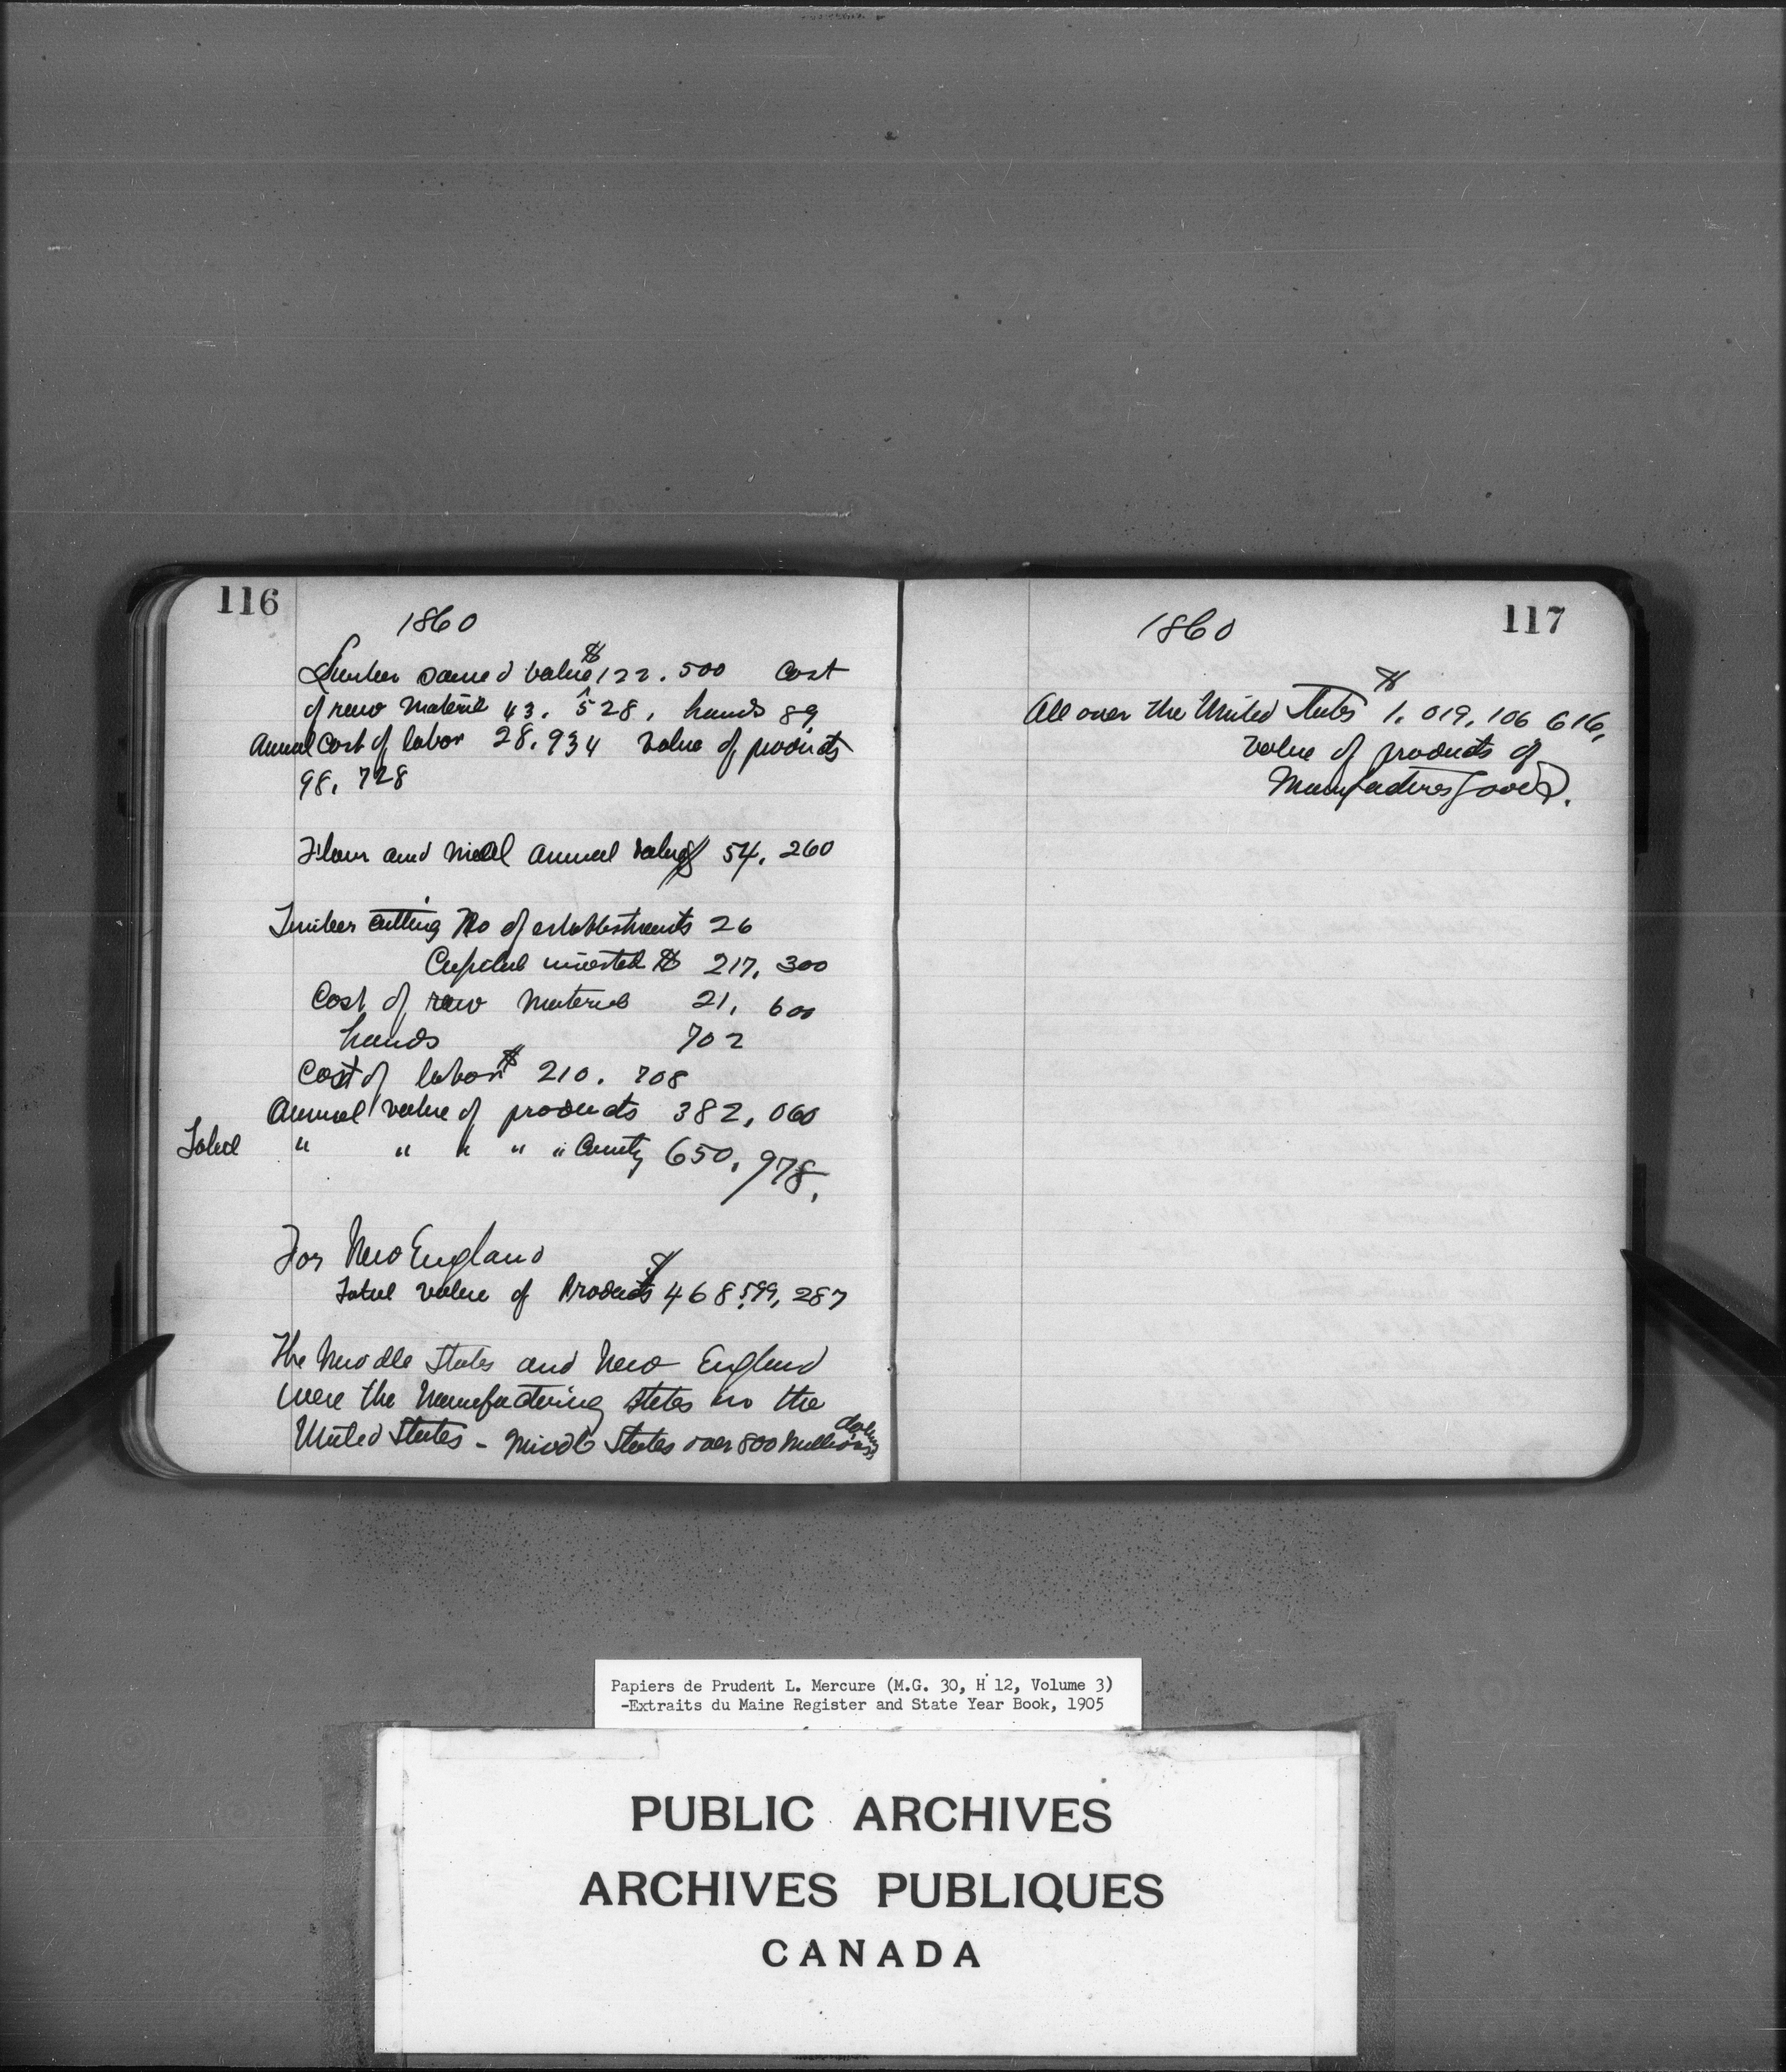 116
1860
Lumber sawed value $ 122.500 Cost
of raw material 43.528, hands 89
Annual Cost of labor 28.934 value of products
98,728
Flour and meal annual value $ 54,260
Timber cutting No of establishments 26
Capital invested $ 217,300
Cost of raw material 21,600
hands 702
Cost of labor $ 210.708
Annual value of products 382,060
Total " " " " " County 650,978,
For New England
Total value of Products $ 468,599,287
The Middle States and New England
were the manufacturing states in the
United States - Middle States over 800 millions dollars
117
1860
All over the United States $ 1,019,106 616,
value of products of
Manufactures
Papiers de Prudent L. Mercure (M.G. 30, H 12, Volume 3)
-Extraits du Maine Register and State Year Book, 1905
PUBLIC ARCHIVES
ARCHIVES PUBLIQUES
CANADA